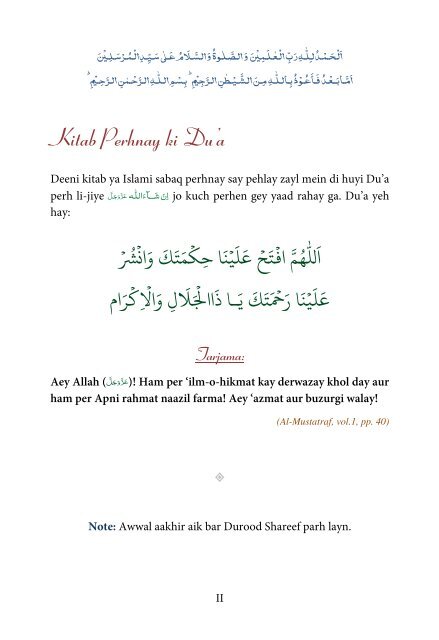 اَلْحَمْدُ لِلّٰهِ رَبِّ الْعٰلَمِيْنَ وَالصَّلٰوةُ وَالسَّلَامُ عَلٰى سَيِّدِ الْمُرْسَلِيْنَ
اَمَّا بَعْدُ فَاَعُوْذُ بِاللّٰهِ مِنَ الشَّيْطٰنِ الرَّجِيْمِ ؕ بِسْمِ اللّٰهِ الرَّحْمٰنِ الرَّحِيْمِ ؕ
Kitab Perhnay ki Du’a
Deeni kitab ya Islami sabaq perhnay say pehlay zayl mein di huyi Du’a
perh li-jiye اِنْ شَــآءَاللّٰه عَزَّوَجَلَّ jo kuch perhen gey yaad rahay ga. Du’a yeh
hay:
اَللّٰهُمَّ افْتَحْ عَلَيْنَا حِكْمَتَكَ وَانْشُرْ
عَلَيْنَا رَحْمَتَكَ يَـا ذَاالْجَلَالِ وَالْاِكْرَام
Tarjama:
Aey Allah (عَزَّوَجَلَّ)! Ham per ‘ilm-o-hikmat kay derwazay khol day aur
ham per Apni rahmat naazil farma! Aey ‘azmat aur buzurgi walay!
(Al-Mustatraf, vol.1, pp. 40)
Note: Awwal aakhir aik bar Durood Shareef parh layn.
II